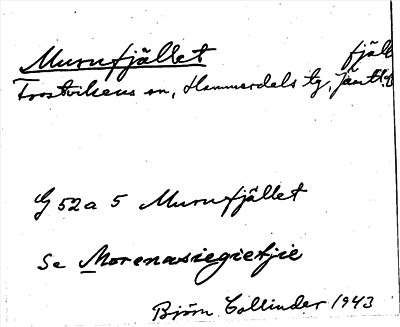 Murufjället fjäll
Frostvikens sn, Hammerdals tg, Jämtl.
G 52a 5 Murufjället
Se Morenasiegietjie
Björn Collinder 1943